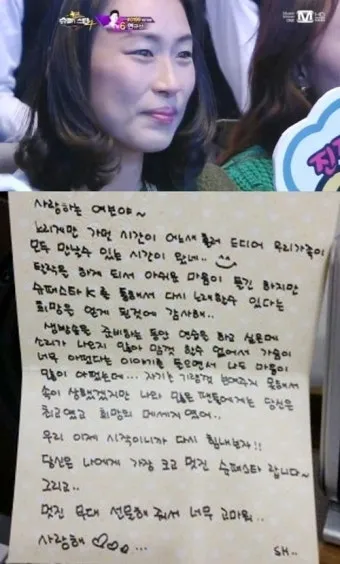 슈퍼스타K
6
M
HD
진
사랑하는 여보야~
느리게만 가던 시간이 어느새 흘러 드디어 우리가족이
모두 만날수 있는 시간이 왔네..
탈락을 하게 되서 아쉬운 마음이 들긴 하지만
슈퍼스타K를 통해서 다시 노래할수 있다는
희망을 얻게 된것에 감사해..
생방송을 준비하는 동안 연습은 하고 싶은데
소리가 나오지 않아 맘껏 할수 없어서 가슴이
너무 아팠다는 이야기를 들으면서 나도 마음이
많이 아팠는데... 자기는 기량껏 보여주지 못해서
속이 상했겠지만 나와 많은 팬들에게는 당신은
최고였고 희망의 메세지 였어..
우리 이제 시작이니까 다시 힘내보자!!
당신은 나에게 가장 크고 멋진 슈퍼스타 랍니다~
그리고..
멋진 무대 선물해 줘서 너무 고마워..
사랑해 ♡♡♡...
SH..